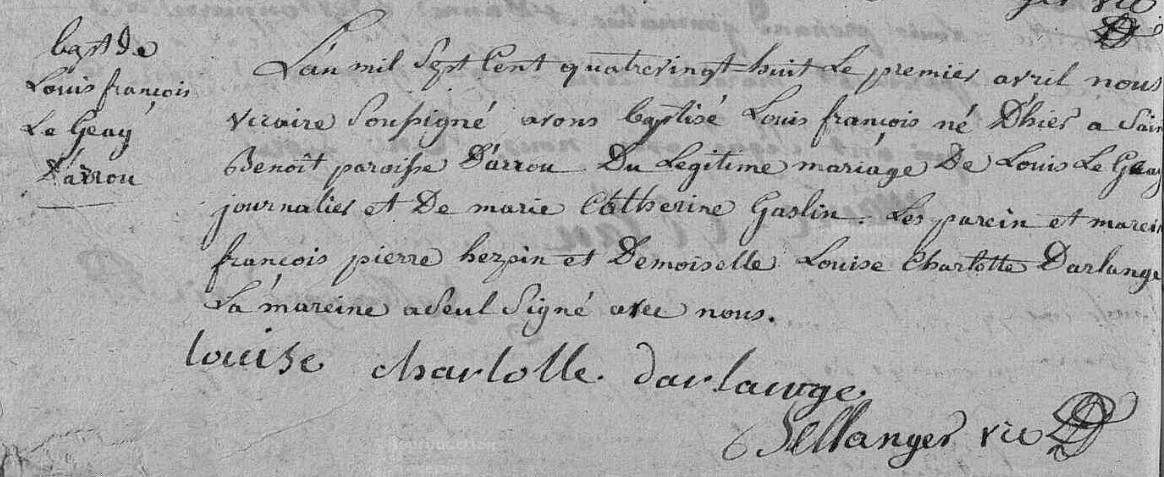 bapt de
Louis françois
Le Geay
D'arrou
L'an mil Sept Cent quatrevingt-huit Le premier avril nous
vicaire Soussigné avons baptisé Louis françois né D'hier a Sain
Benoît paroisse D'arrou Du Legitime mariage De Louis Le Geay
journalier et De marie Catherine Gaslin. Les parein et marein
françois pierre herpin et Demoiselle Louise Charlotte Darlange
La mareine a Seul Signé avec nous.
louise charlotte darlange
Bellanger vic